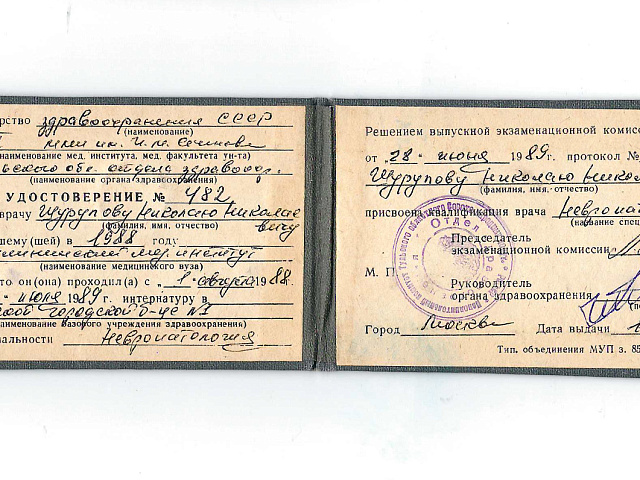 рство здравоохранения СССР
(наименование)
ММИ им. И.М. Сеченова
наименование мед. института, мед. факультета ун-та)
ьского обл. отдела здравоох.
(наименование органа здравоохранения)
УДОСТОВЕРЕНИЕ № 482
врачу Шурупову Николаю Николае
вичу
(фамилия, имя, отчество)
шему(шей) в 1988 году
мединститут
(наименование медицинского вуза)
то он(она) проходил(а) с „1" августа 1988 г.
июля 1989 г. интернатуру в
городской б-це №1
(наименование базового учреждения здравоохранения)
альности Невропатология
Решением выпускной экзаменационной комисс
от „28" июня 1989 г. протокол №
Шурупову Николаю Никол
(фамилия, имя, отчество)
присвоена квалификация врача Невропат
(название спец
Председатель
экзаменационной комиссии
М. П.
Руководитель
органа здравоохранения
Город Москва Дата выдачи
Тип. объединения МУП з. 85